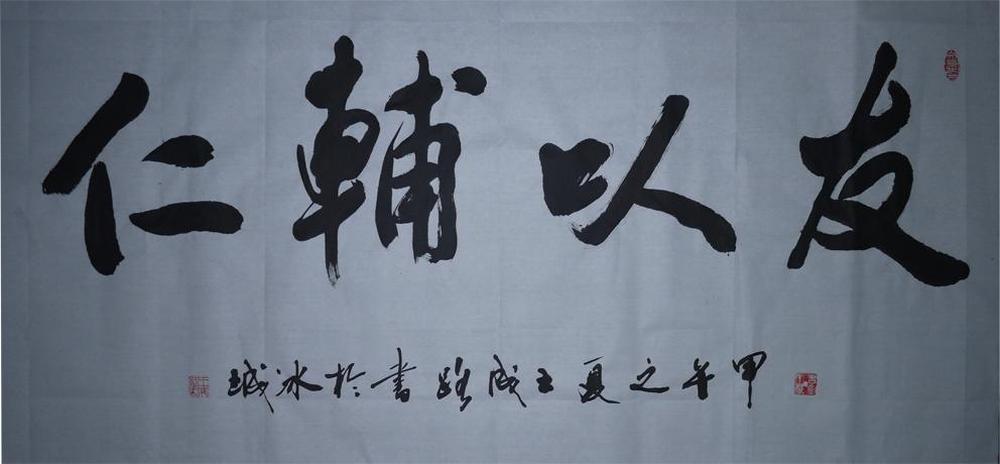 友以輔仁
甲午之夏王成路書於冰城